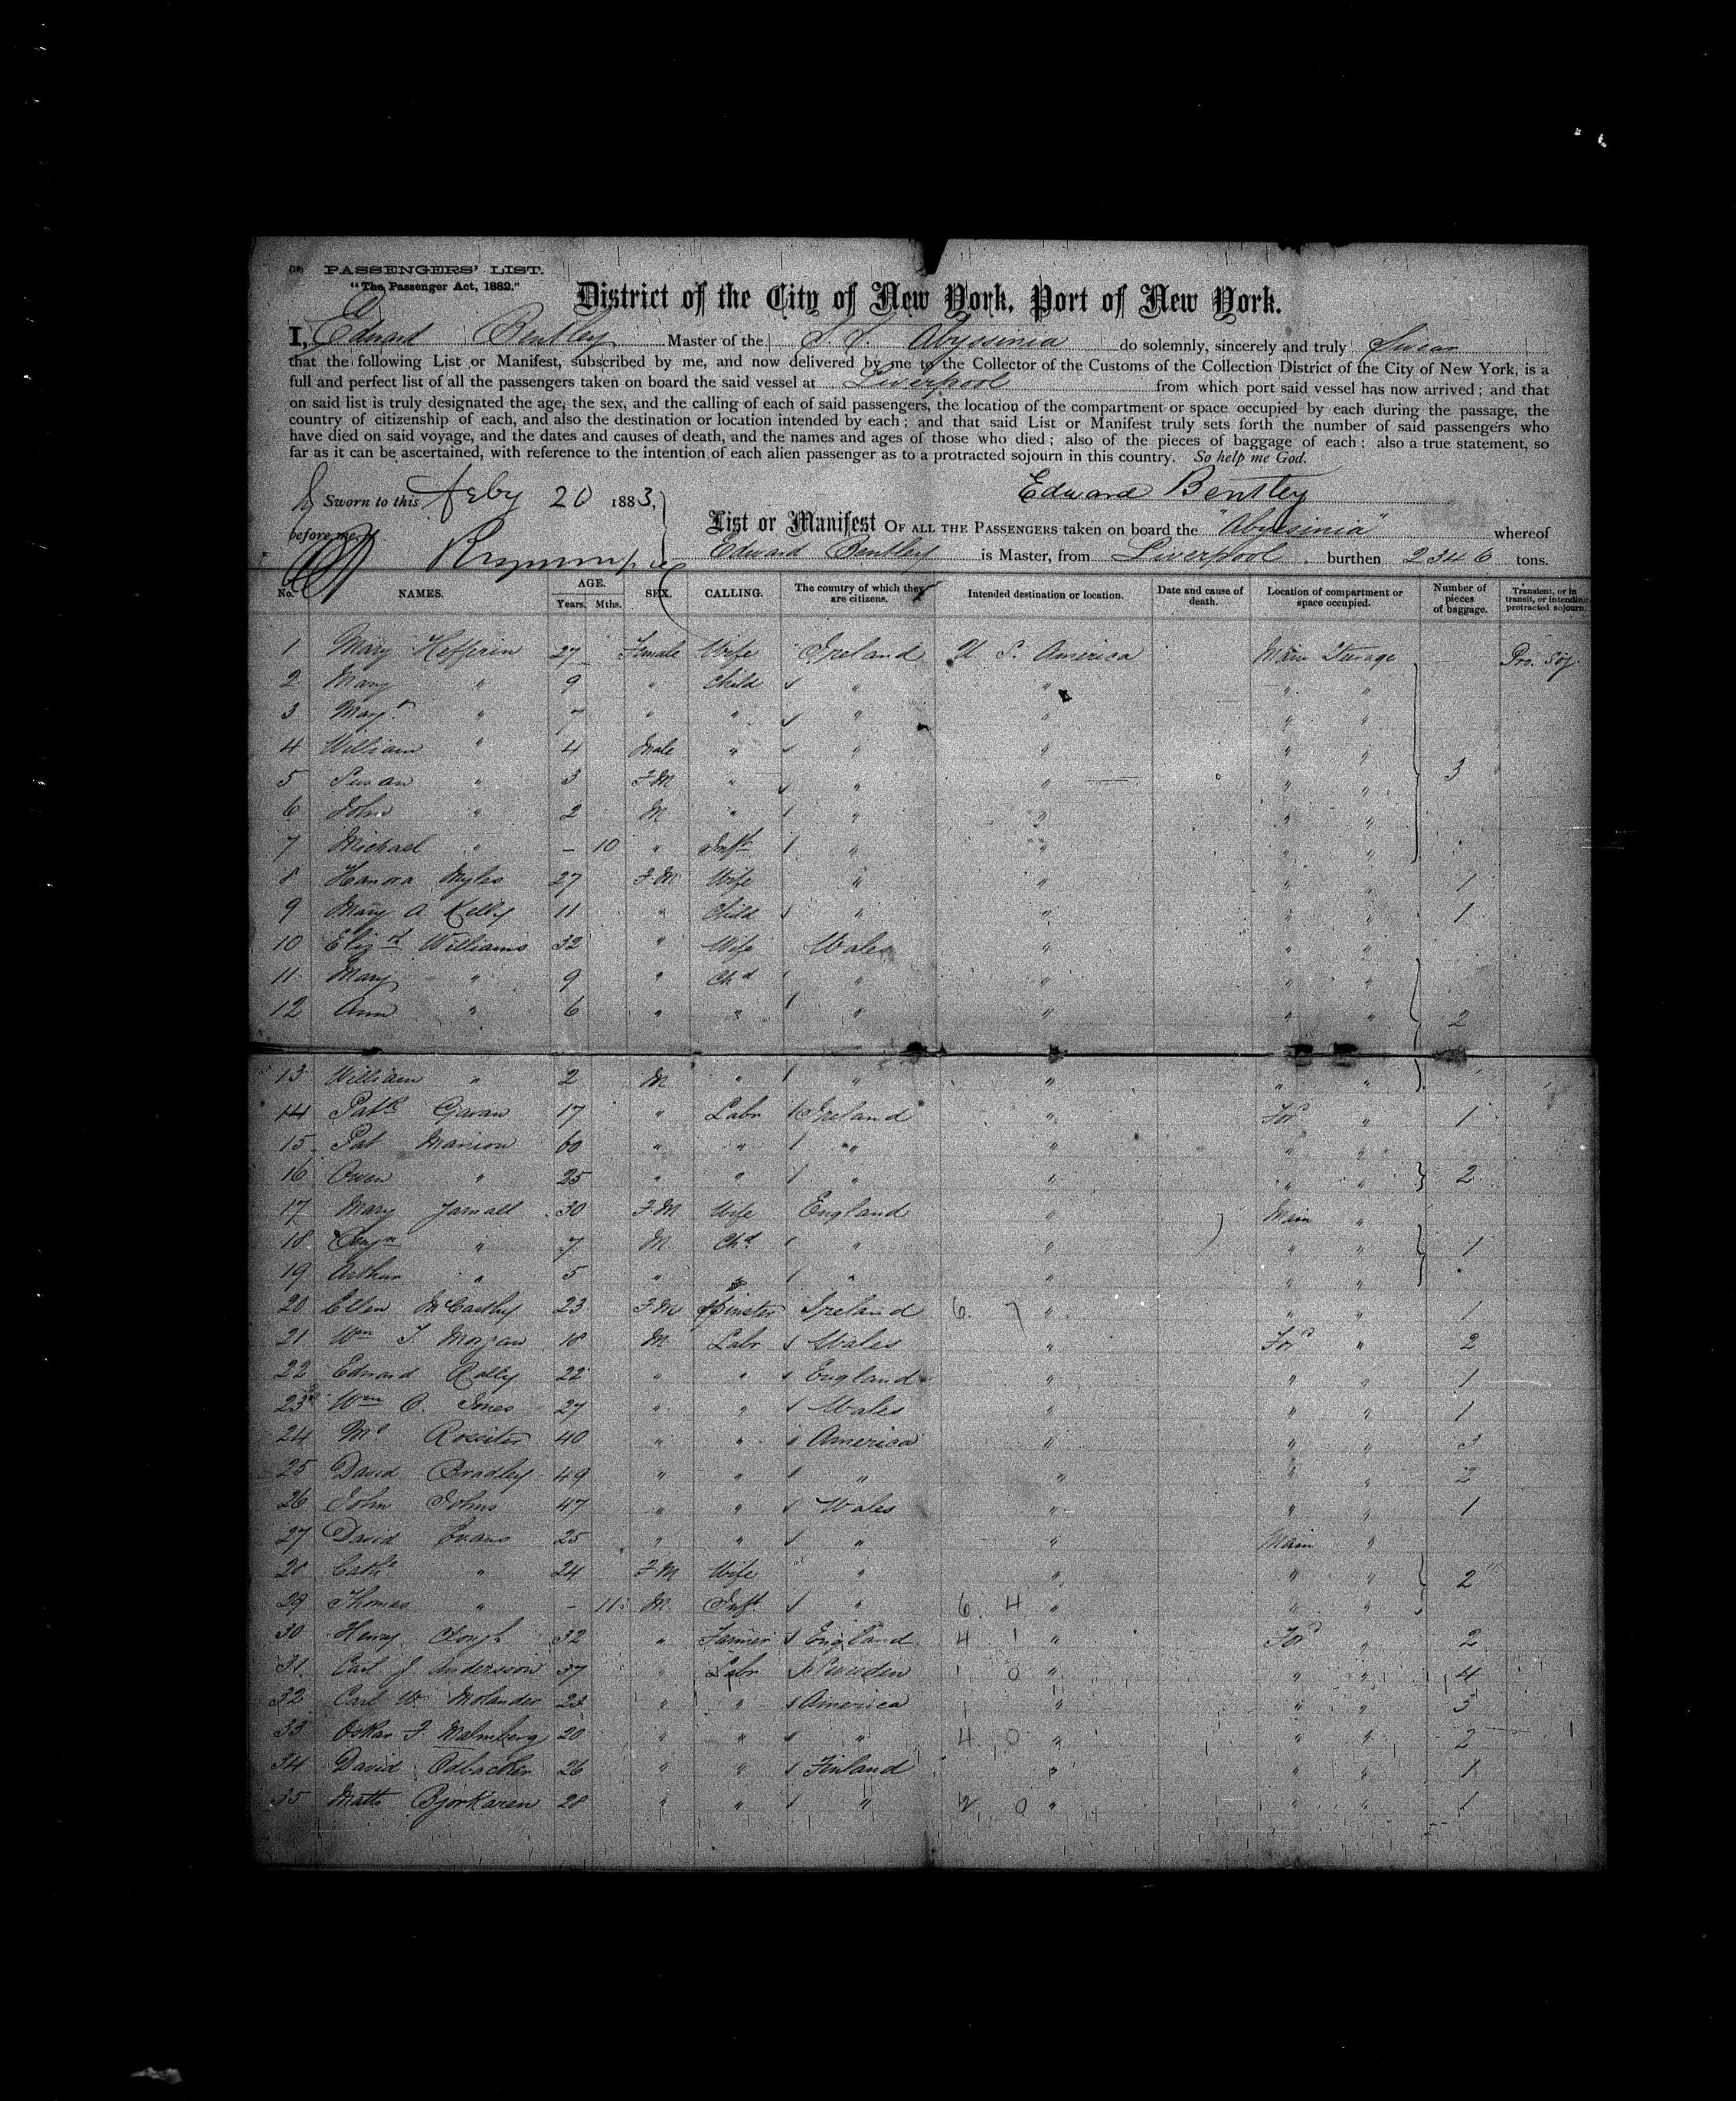 (19) PASSENGERS' LIST.
"The Passenger Act, 1882."
District of the City of New York, Port of New York.
I, Edward Bentley Master of the S. S. Abyssinia do solemnly, sincerely and truly Swear
that the following List or Manifest, subscribed by me, and now delivered by me to the Collector of the Customs of the Collection District of the City of New York, is a
full and perfect list of all the passengers taken on board the said vessel at Liverpool from which port said vessel has now arrived; and that
on said list is truly designated the age, the sex, and the calling of each of said passengers, the location of the compartment or space occupied by each during the passage, the
country of citizenship of each, and also the destination or location intended by each; and that said List or Manifest truly sets forth the number of said passengers who
have died on said voyage, and the dates and causes of death, and the names and ages of those who died; also of the pieces of baggage of each; also a true statement, so
far as it can be ascertained, with reference to the intention of each alien passenger as to a protracted sojourn in this country. So help me God.
Sworn to this Feby 20 1883,
Edward Bentley
before me,
List or Manifest OF ALL THE PASSENGERS taken on board the "Abyssinia" whereof
Edward Bentley is Master, from Liverpool, burthen 2346 tons.
No. NAMES. AGE. Years. Mths. SEX. CALLING. The country of which they are citizens. Intended destination or location. Date and cause of death. Location of compartment or space occupied. Number of pieces of baggage. Transient, or in transit, or intending protracted sojourn.
1 Mary Hefferin 27 Female Wife Ireland U. S. America Main Sterage Pro. Soj.
2 Mary " 9 " Child " " " "
3 Margt " 7 " " " " " "
4 William " 4 Male " " " " "
5 Susan " 3 FM " " " " " 3
6 John " 2 M " " " " "
7 Michael " – 10 " Inft " " " "
8 Hanora Myles 27 FM Wife " " " " 1
9 Mary A Kelly 11 " Child " " " " 1
10 Elizth Williams 32 " Wife Wales " " "
11 Mary " 9 " Chd " " " "
12 Ann " 6 " " " " " " 2
13 William " 2 M " " " " "
14 Patk Gavan 17 " Labr Ireland " For " 1
15 Pat Manion 60 " " " " " "
16 Owen " 25 " " " " " " 2
17 Mary Jarnall 30 FM Wife England " Main "
18 Benjn " 7 M Chd " " " " 1
19 Arthur " 5 " " " " " "
20 Ellen McCarthy 23 FM Spinster Ireland 6. 7 " " " 1
21 Wm T. Morgan 18 M Labr Wales " For " 2
22 Edward Rally 22 " " England " " " 1
23 Wm O. Jones 27 " " Wales " " " 1
24 Ml Rossiter 40 " " America " " " 3
25 David Bradley 49 " " " " " " 2
26 John Johns 47 " " Wales " " " 1
27 David Evans 25 " " " " Main "
28 Cathe " 24 FM Wife " " " " 2
29 Thomas " – 11 M Inft " 6 4 " " "
30 Henry Clough 32 " Farmer England 4 1 " For " 2
31 Carl J Andersson 37 " Labr Sweden 1 0 " " " 4
32 Carl W Molander 23 " " America 1 " " " 3
33 Oskar F. Malmberg 20 " " " 4 0 " " " 2
34 David Odbacker 26 " " Finland " " " 1
35 Matts Bjorkaren 28 " " " 2 0 " " " 1